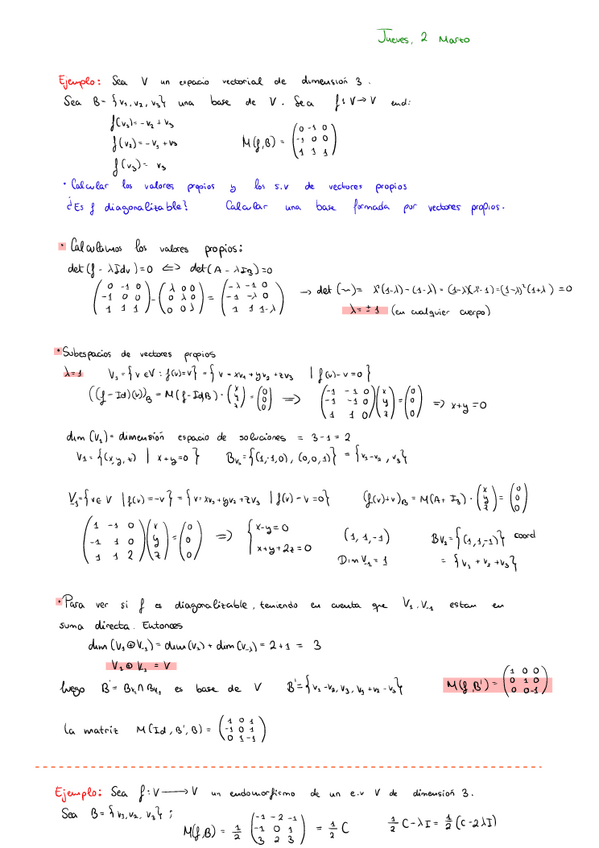 Jueves, 2 Marzo
Ejemplo: Sea V un espacio vectorial de dimensión 3.
Sea B = {v₁, v₂, v₃} una base de V. Sea f: V → V end:
f(v₁) = -v₂ + v₃
f(v₂) = -v₁ + v₃
f(v₃) = v₃
M(f,B) = (0 -1 0; -1 0 0; 1 1 1)
· Calcular los valores propios y los s.v de vectores propios
¿Es f diagonalizable? Calcular una base formada por vectores propios.
· Calculamos los valores propios:
det(f - λIdv) = 0 ⟺ det(A - λI₃) = 0
(0 -1 0; -1 0 0; 1 1 1) - (λ 0 0; 0 λ 0; 0 0 λ) = (-λ -1 0; -1 -λ 0; 1 1 1-λ) → det(~) = λ²(1-λ) - (1-λ) = (1-λ)(λ²-1) = (1-λ)²(1+λ) = 0
λ = ±1 (en cualquier cuerpo)
· Subespacios de vectores propios
λ=1 V₁ = {v ∈ V : f(v) = v} = {v = xv₁ + yv₂ + zv₃ | f(v) - v = 0}
((f-Id)(v))_B = M(f-Id,B) · (x; y; z) = (0; 0; 0) ⟹ (-1 -1 0; -1 -1 0; 1 1 0)(x; y; z) = (0; 0; 0) ⟹ x+y = 0
dim(V₁) = dimensión espacio de soluciones = 3-1 = 2
V₁ = {(x,y,z) | x+y = 0} B_V₁ = {(1,-1,0), (0,0,1)} = {v₁-v₂, v₃}
V₋₁ = {v ∈ V | f(v) = -v} = {v = xv₁ + yv₂ + zv₃ | f(v) - v = 0} (f(v)+v)_B = M(A + I₃) · (x; y; z) = (0; 0; 0)
(1 -1 0; -1 1 0; 1 1 2)(x; y; z) = (0; 0; 0) ⟹ {x-y = 0; x+y+2z = 0 (1,1,-1) B_V₂ = {(1,1,-1)} coord
Dim V₋₁ = 1 = {v₁ + v₂ + v₃}
· Para ver si f es diagonalizable, teniendo en cuenta que V₁, V₋₁ estan en
suma directa. Entonces
dim(V₁ ⊕ V₋₁) = dim(V₁) + dim(V₋₁) = 2+1 = 3
V₁ ⊕ V₋₁ = V
luego B' = B_V₁ ∩ B_V₂ es base de V B' = {v₁-v₂, v₃, v₁+v₂-v₃} M(f,B') = (1 0 0; 0 1 0; 0 0 -1)
La matriz M(Id, B', B) = (1 0 1; -1 0 1; 0 1 -1)
Ejemplo: Sea f: V → V un endomorfismo de un e.v V de dimensión 3.
Sea B = {v₁, v₂, v₃};
M(f,B) = 1/2 (-1 -2 -1; -1 0 1; 3 2 3) = 1/2 C 1/2 C - λI = 1/2 (C - 2λI)